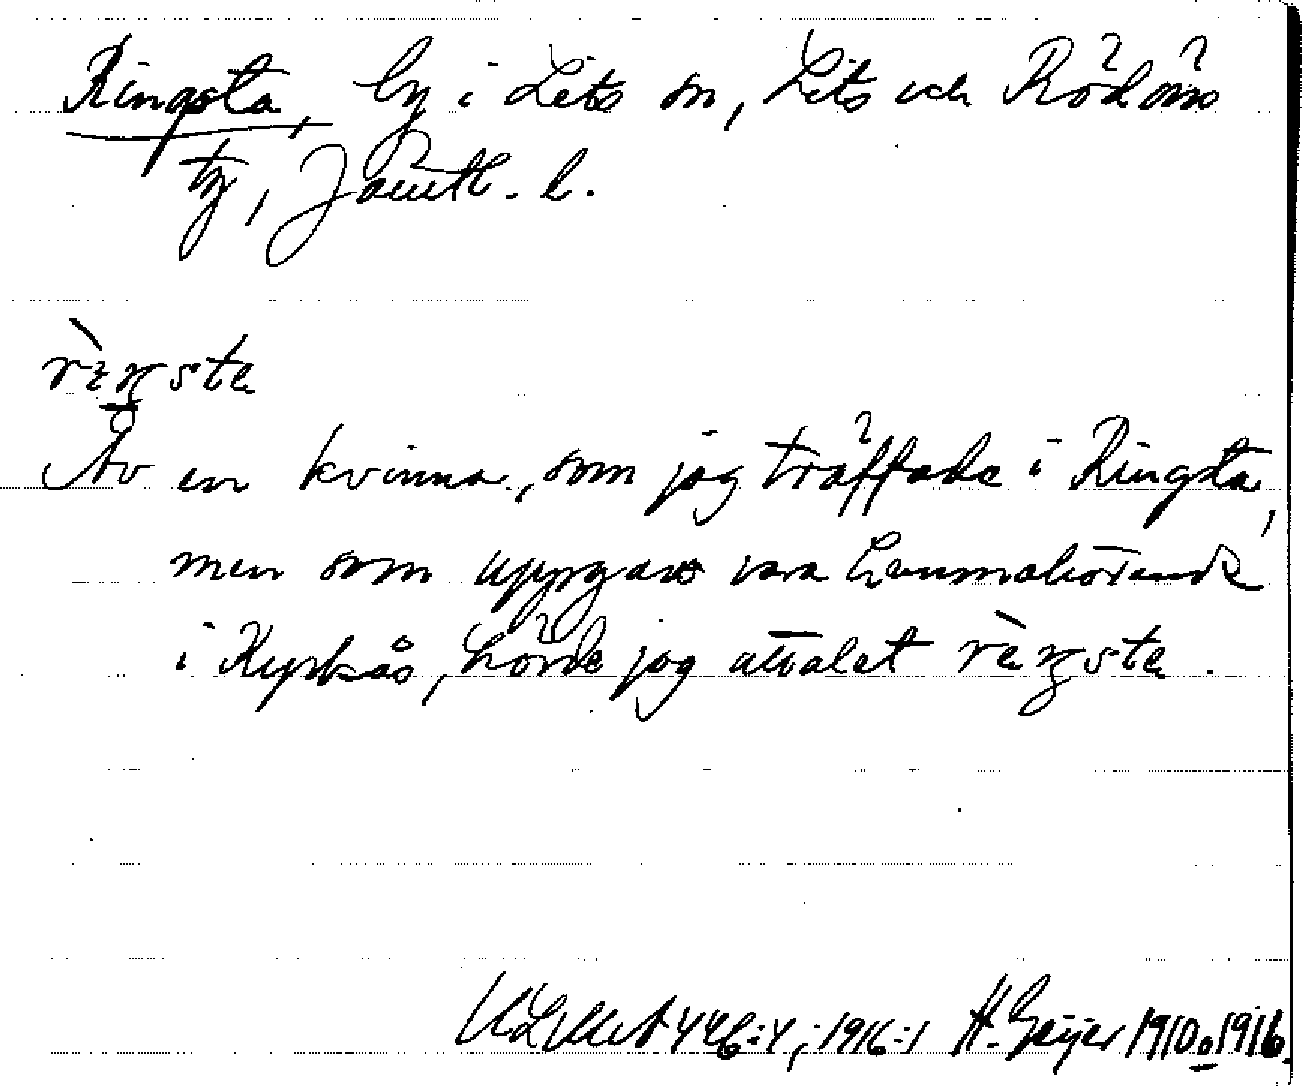 Ringsta, by i Lits sn, Lits och Rödöns
tg, Jämtl. l.
rèŋsta
Av en kvinna, som jag träffade i Ringsta,
men som uppgavs vara hemmahörande
i Kyrkås, hörde jag uttalet rèŋsta.
ULMA 446:4, 1916:1 H. Geijer 1910 o 1916.